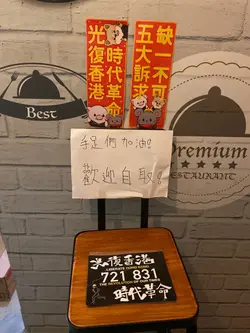 光復香港
時代革命
五大訴求
缺一不可
Best
手足們加油!
歡迎自取!
Premium
RESTAURANT
光復香港
LIBERATE HONG KONG
721 831
THE REVOLUTION OF OUR TIMES
時代革命